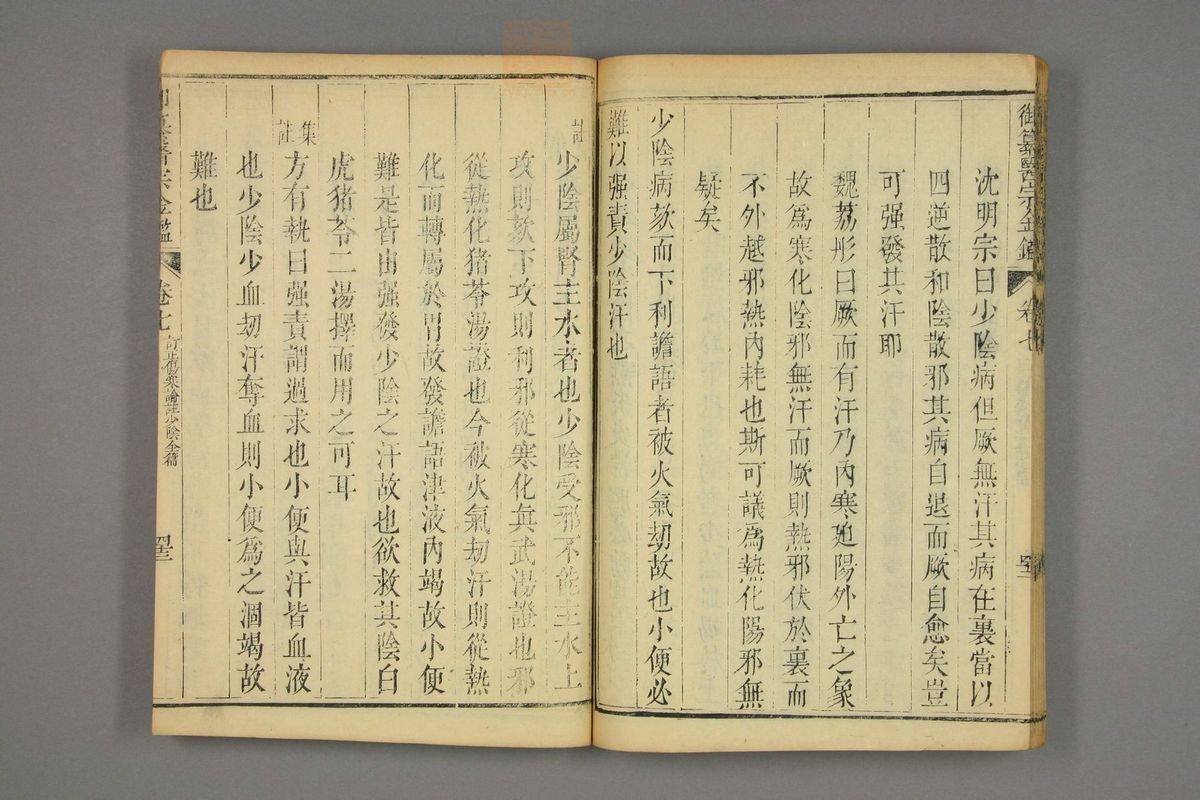 御纂醫宗金鑑 卷七
沈明宗曰少陰病但厥無汗其病在裏當以
四逆散和陰散邪其病自退而厥自愈矣豈
可强發其汗耶
魏荔彤曰厥而有汗乃內寒迫陽外亡之象
故爲寒化陰邪無汗而厥則熱邪伏於裏而
不外越邪熱內耗也斯可議爲熱化陽邪無
疑矣
少陰病欬而下利讝語者被火氣刼故也小便必
難以强責少陰汗也
註 少陰屬腎主水者也少陰受邪不能主水上
攻則欬下攻則利邪從寒化眞武湯證也邪
從熱化猪苓湯證也今被火氣刼汗則從熱
化而轉屬於胃故發讝語津液內竭故小便
難是皆由强發少陰之汗故也欲救其陰白
虎猪苓二湯擇而用之可耳
集註 方有執曰强責謂過求也小便與汗皆血液
也少陰少血刼汗奪血則小便爲之涸竭故
難也
醫宗金鑑 卷七 訂正傷寒論註少陰全篇